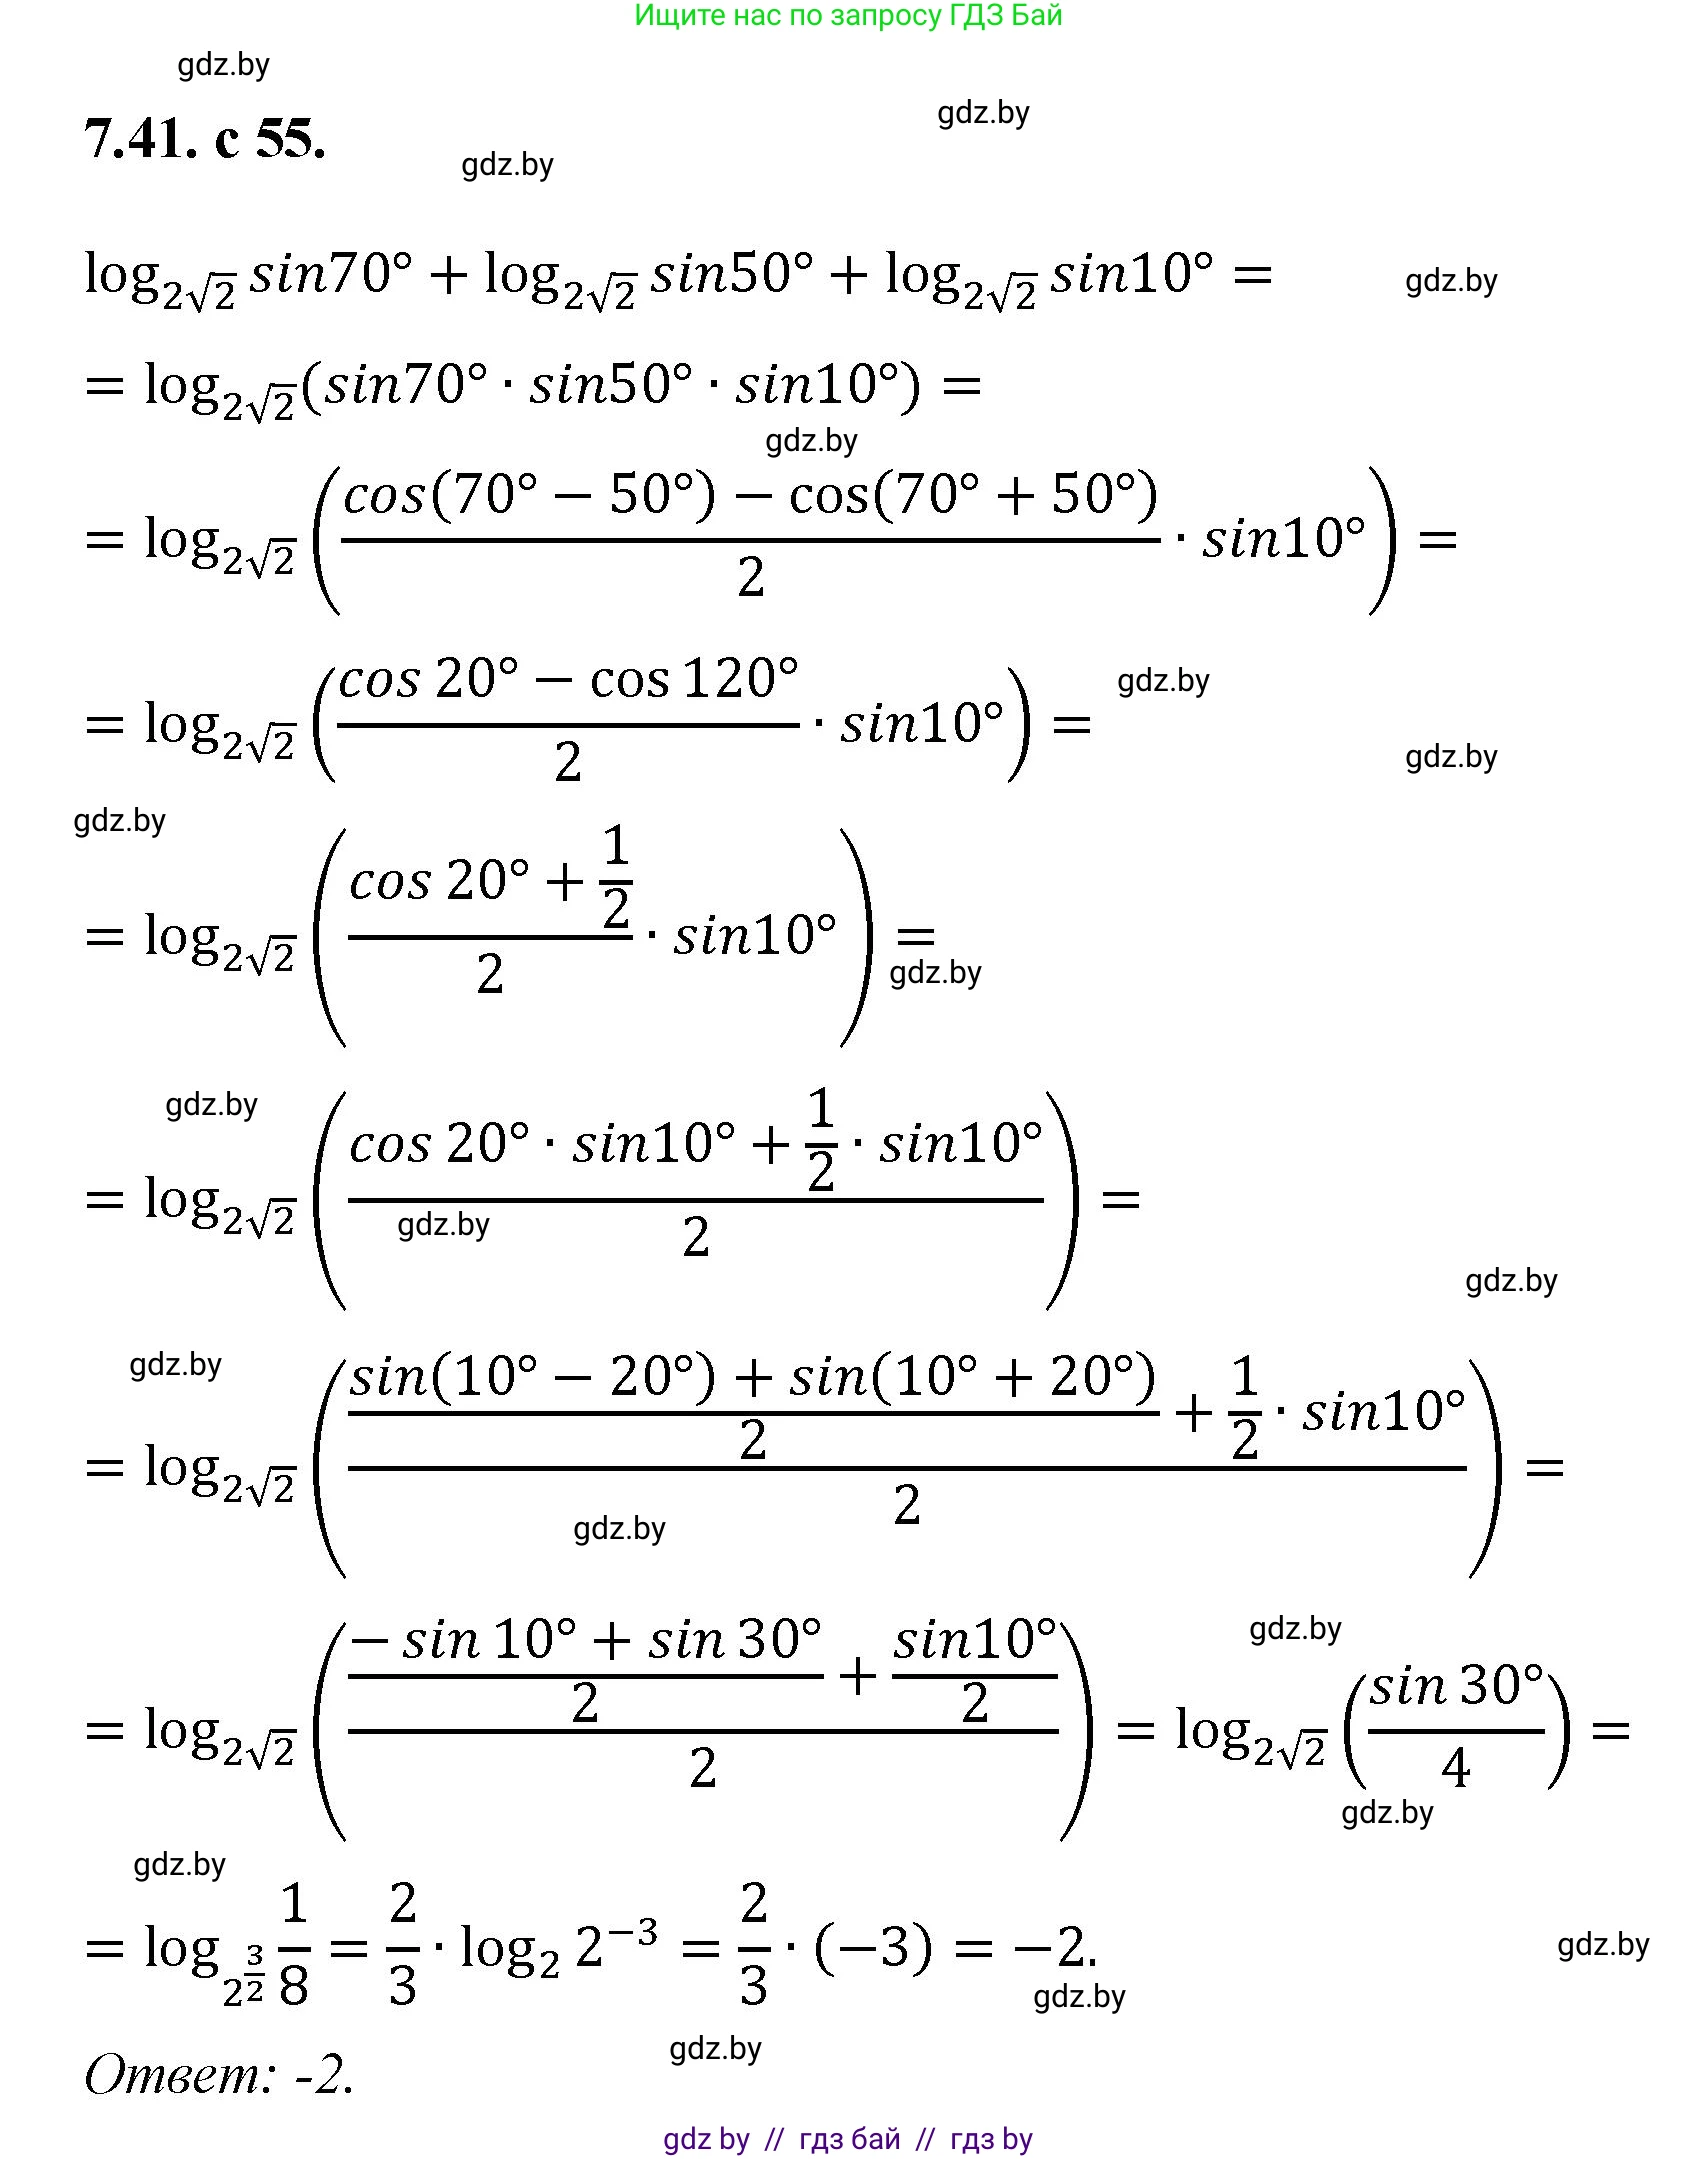 Ищите нас по запросу ГДЗ Бай
gdz.by
gdz.by
7.41. с 55.
gdz.by
log_{2√2} sin70° + log_{2√2} sin50° + log_{2√2} sin10° =
gdz.by
= log_{2√2}(sin70° · sin50° · sin10°) =
gdz.by
= log_{2√2} ((cos(70° − 50°) − cos(70° + 50°))/2 · sin10°) =
= log_{2√2} ((cos 20° − cos 120°)/2 · sin10°) =
gdz.by
gdz.by
gdz.by
= log_{2√2} ((cos 20° + 1/2)/2 · sin10°) =
gdz.by
gdz.by
= log_{2√2} ((cos 20° · sin10° + 1/2 · sin10°)/2) =
gdz.by
gdz.by
gdz.by
= log_{2√2} (((sin(10° − 20°) + sin(10° + 20°))/2 + 1/2 · sin10°)/2) =
gdz.by
gdz.by
= log_{2√2} (((− sin 10° + sin 30°)/2 + sin10°/2)/2) = log_{2√2} (sin 30°/4) =
gdz.by
gdz.by
= log_{2^{3/2}} 1/8 = 2/3 · log_2 2^{−3} = 2/3 · (−3) = −2.
gdz.by
gdz.by
gdz.by
Ответ: -2.
gdz by // гдз бай // гдз by